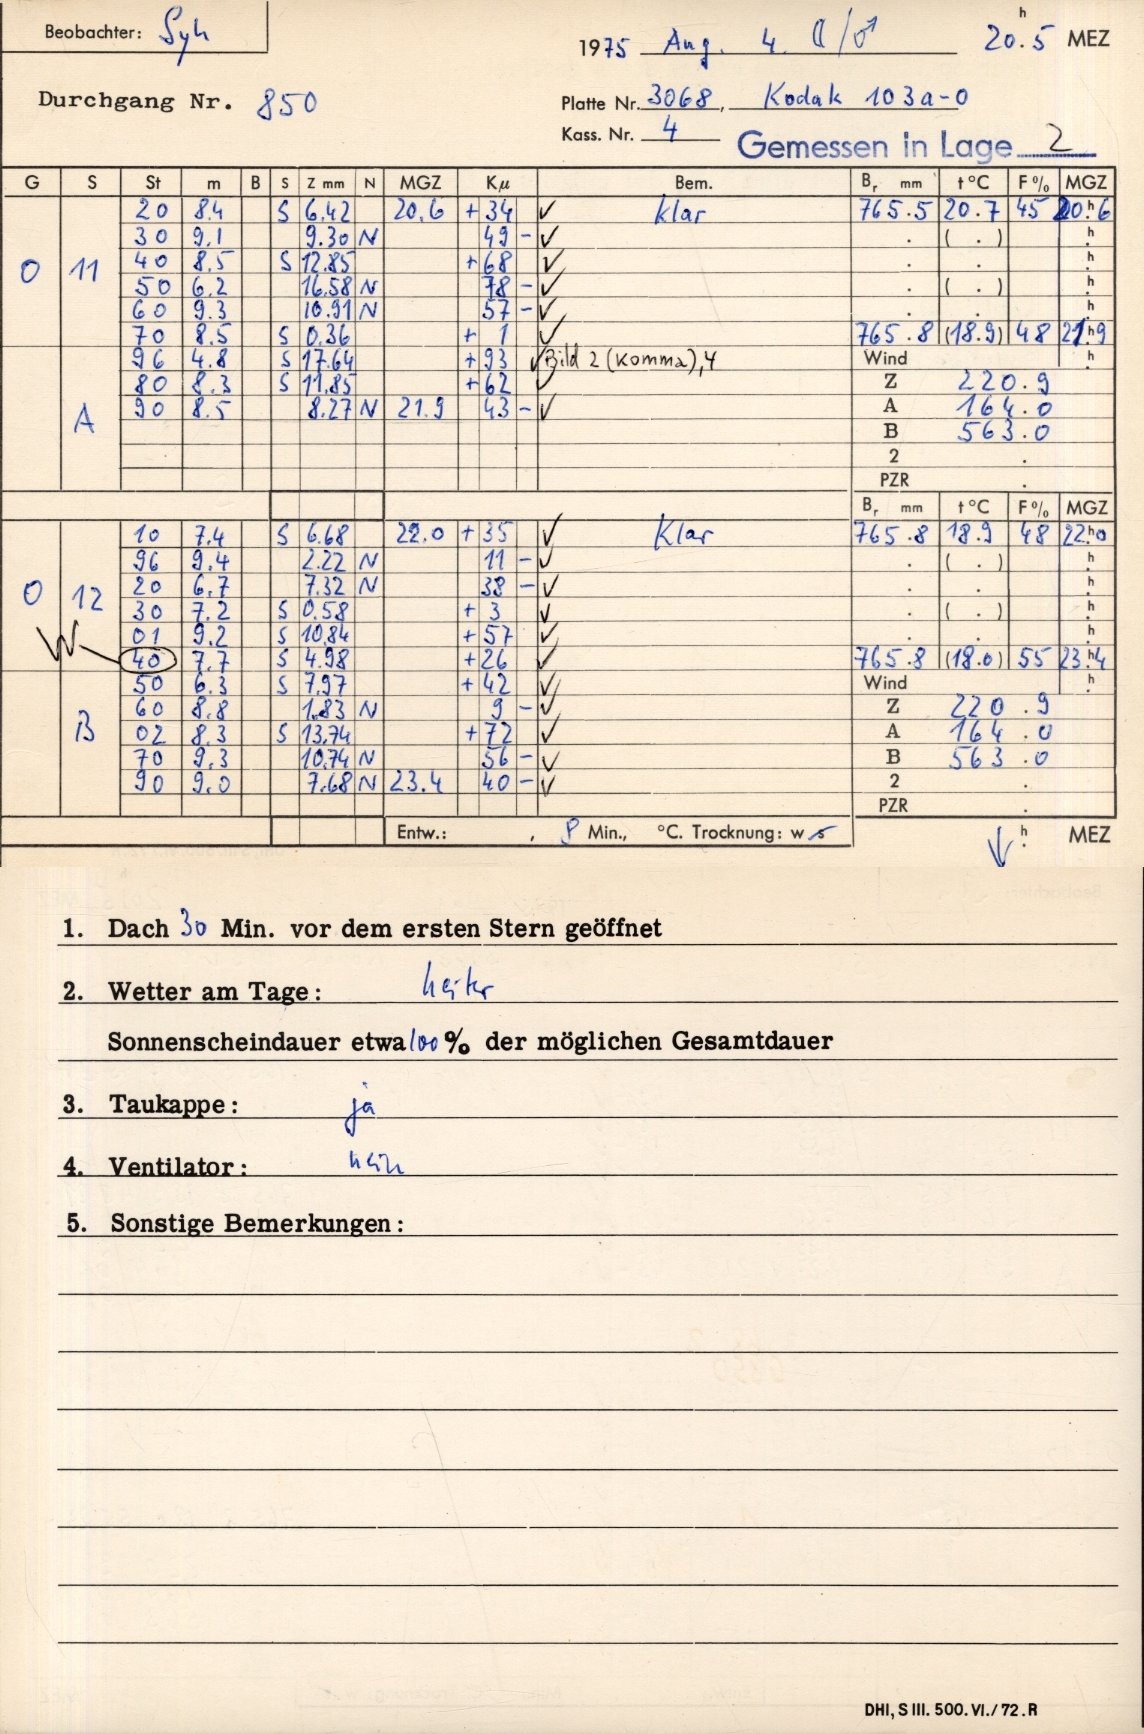 Beobachter: Syh
1975 Aug. 4. ☾/♂ 20.5 h MEZ
Durchgang Nr. 850
Platte Nr. 3068, Kodak 103a-O
Kass. Nr. 4
Gemessen in Lage 2
G S St m B S Z mm N MGZ Kμ Bem. Br mm t °C F% MGZ
20 8.4 S 6.42 20.6 +34 ✓ klar 765.5 20.7 45 20.6 h
30 9.1 9.30 N 49 - ✓ . ( . ) h
0 11 40 8.5 S 12.85 +68 ✓ . . h
50 6.2 16.58 N 78 - ✓ . ( . ) h
60 9.3 10.91 N 57 - ✓ . . h
70 8.5 S 0.36 + 1 ✓ 765.8 (18.9) 48 21.9 h
96 4.8 S 17.64 +93 ✓ Bild 2 (Komma), 4 Wind h
80 8.3 S 11.85 +62 ✓ Z 220.9
A 90 8.5 8.27 N 21.9 43 - ✓ A 164.0
B 563.0
2 .
PZR .
Br mm t °C F% MGZ
10 7.4 S 6.68 22.0 +35 ✓ Klar 765.8 18.9 48 22.0 h
96 9.4 2.22 N 11 - ✓ . ( . ) h
0 12 20 6.7 7.32 N 38 - ✓ . . h
30 7.2 S 0.58 + 3 ✓ . ( . ) h
01 9.2 S 10.84 +57 ✓ . . h
W 40 7.7 S 4.98 +26 ✓ 765.8 (18.0) 55 23.4 h
50 6.3 S 7.97 +42 ✓ Wind h
60 8.8 1.83 N 9 - ✓ Z 220.9
B 02 8.3 S 13.74 +72 ✓ A 164.0
70 9.3 10.74 N 56 - ✓ B 563.0
90 9.0 7.68 N 23.4 40 - ✓ 2 .
PZR .
Entw.: , 8 Min., °C. Trocknung: w s ↓ h MEZ
1. Dach 30 Min. vor dem ersten Stern geöffnet
2. Wetter am Tage: heiter
Sonnenscheindauer etwa 100 % der möglichen Gesamtdauer
3. Taukappe: ja
4. Ventilator: nein
5. Sonstige Bemerkungen:
DHI, S III. 500. VI./72. R